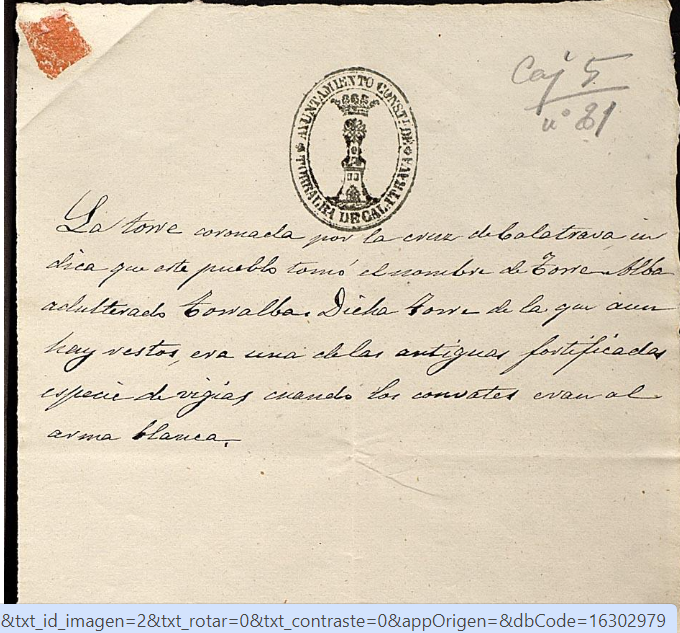 Caj 5
nº 81
AYUNTAMIENTO CONST. DE
TORRALBA DE CALATRAVA
La torre coronada por la cruz de Calatrava in
dica que este pueblo tomó el nombre de Torre Alba
adulterado Torralba. Dicha torre de la que aun
hay restos, era una de las antiguas fortificadas
especie de vigias, cuando los convates eran al
arma blanca.
&txt_id_imagen=2&txt_rotar=0&txt_contraste=0&appOrigen=&dbCode=16302979